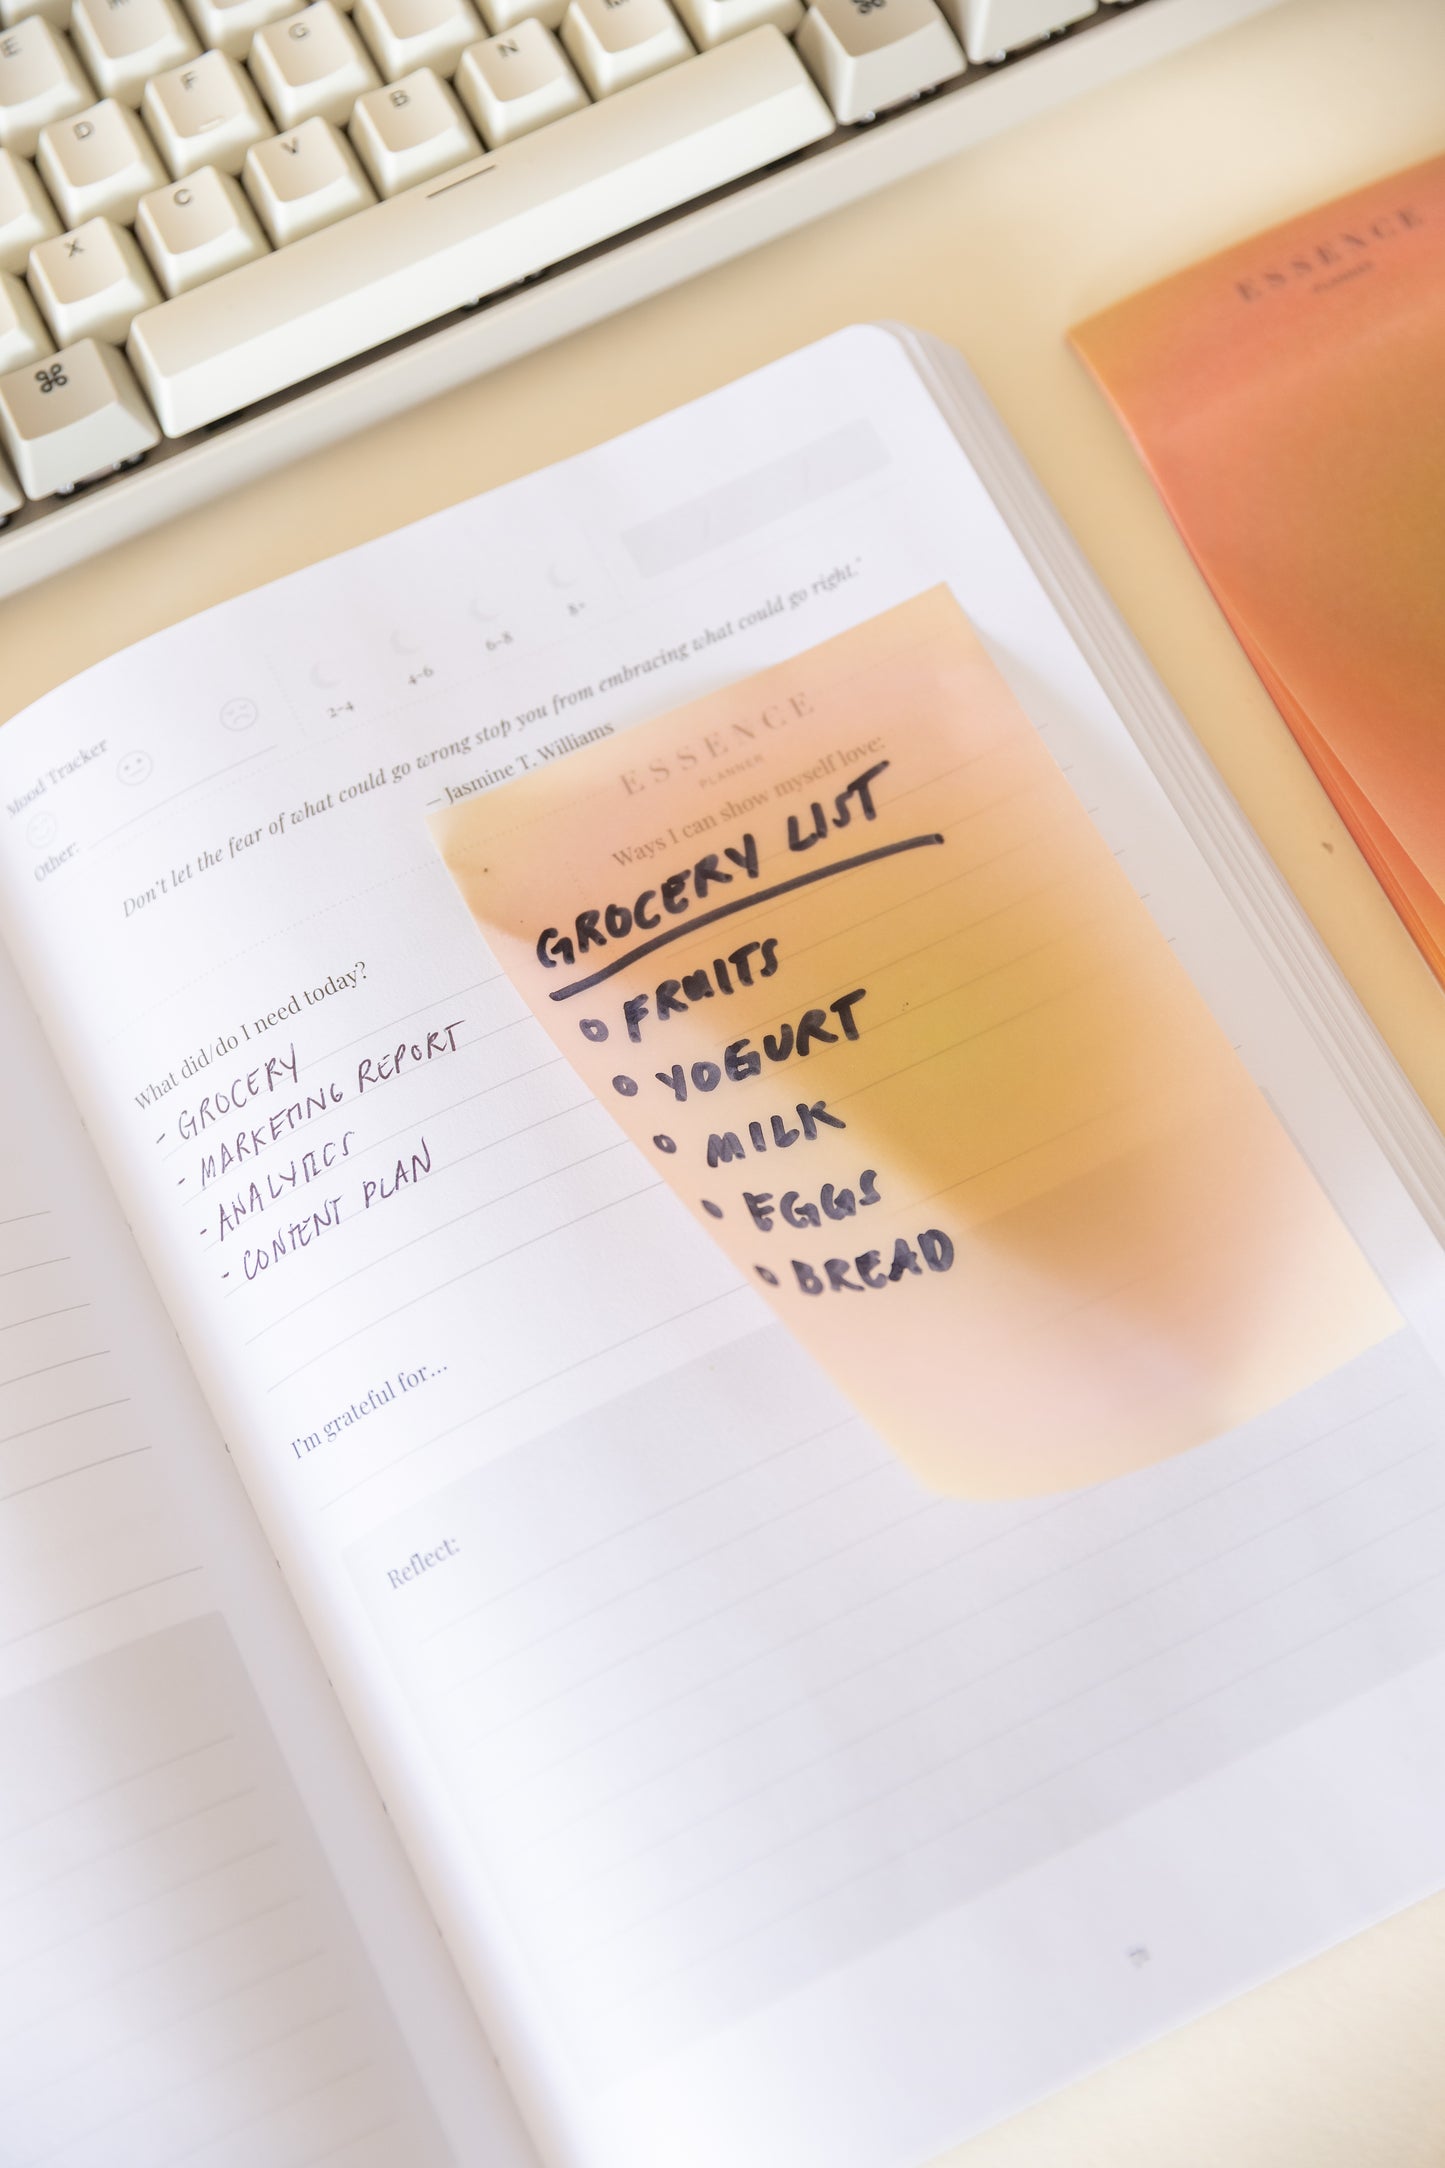 E
G
D
F
N
B
V
C
X
⌘
⌘
ESSENCE
PLANNER
Mood Tracker
Other:
2-4
4-6
6-8
8+
Don't let the fear of what could go wrong stop you from embracing what could go right."
– Jasmine T. Williams
ESSENCE
PLANNER
Ways I can show myself love:
GROCERY LIST
FRUITS
YOGURT
MILK
EGGS
BREAD
What did/do I need today?
- GROCERY
- MARKETING REPORT
- ANALYTICS
- CONTENT PLAN
I'm grateful for...
Reflect: